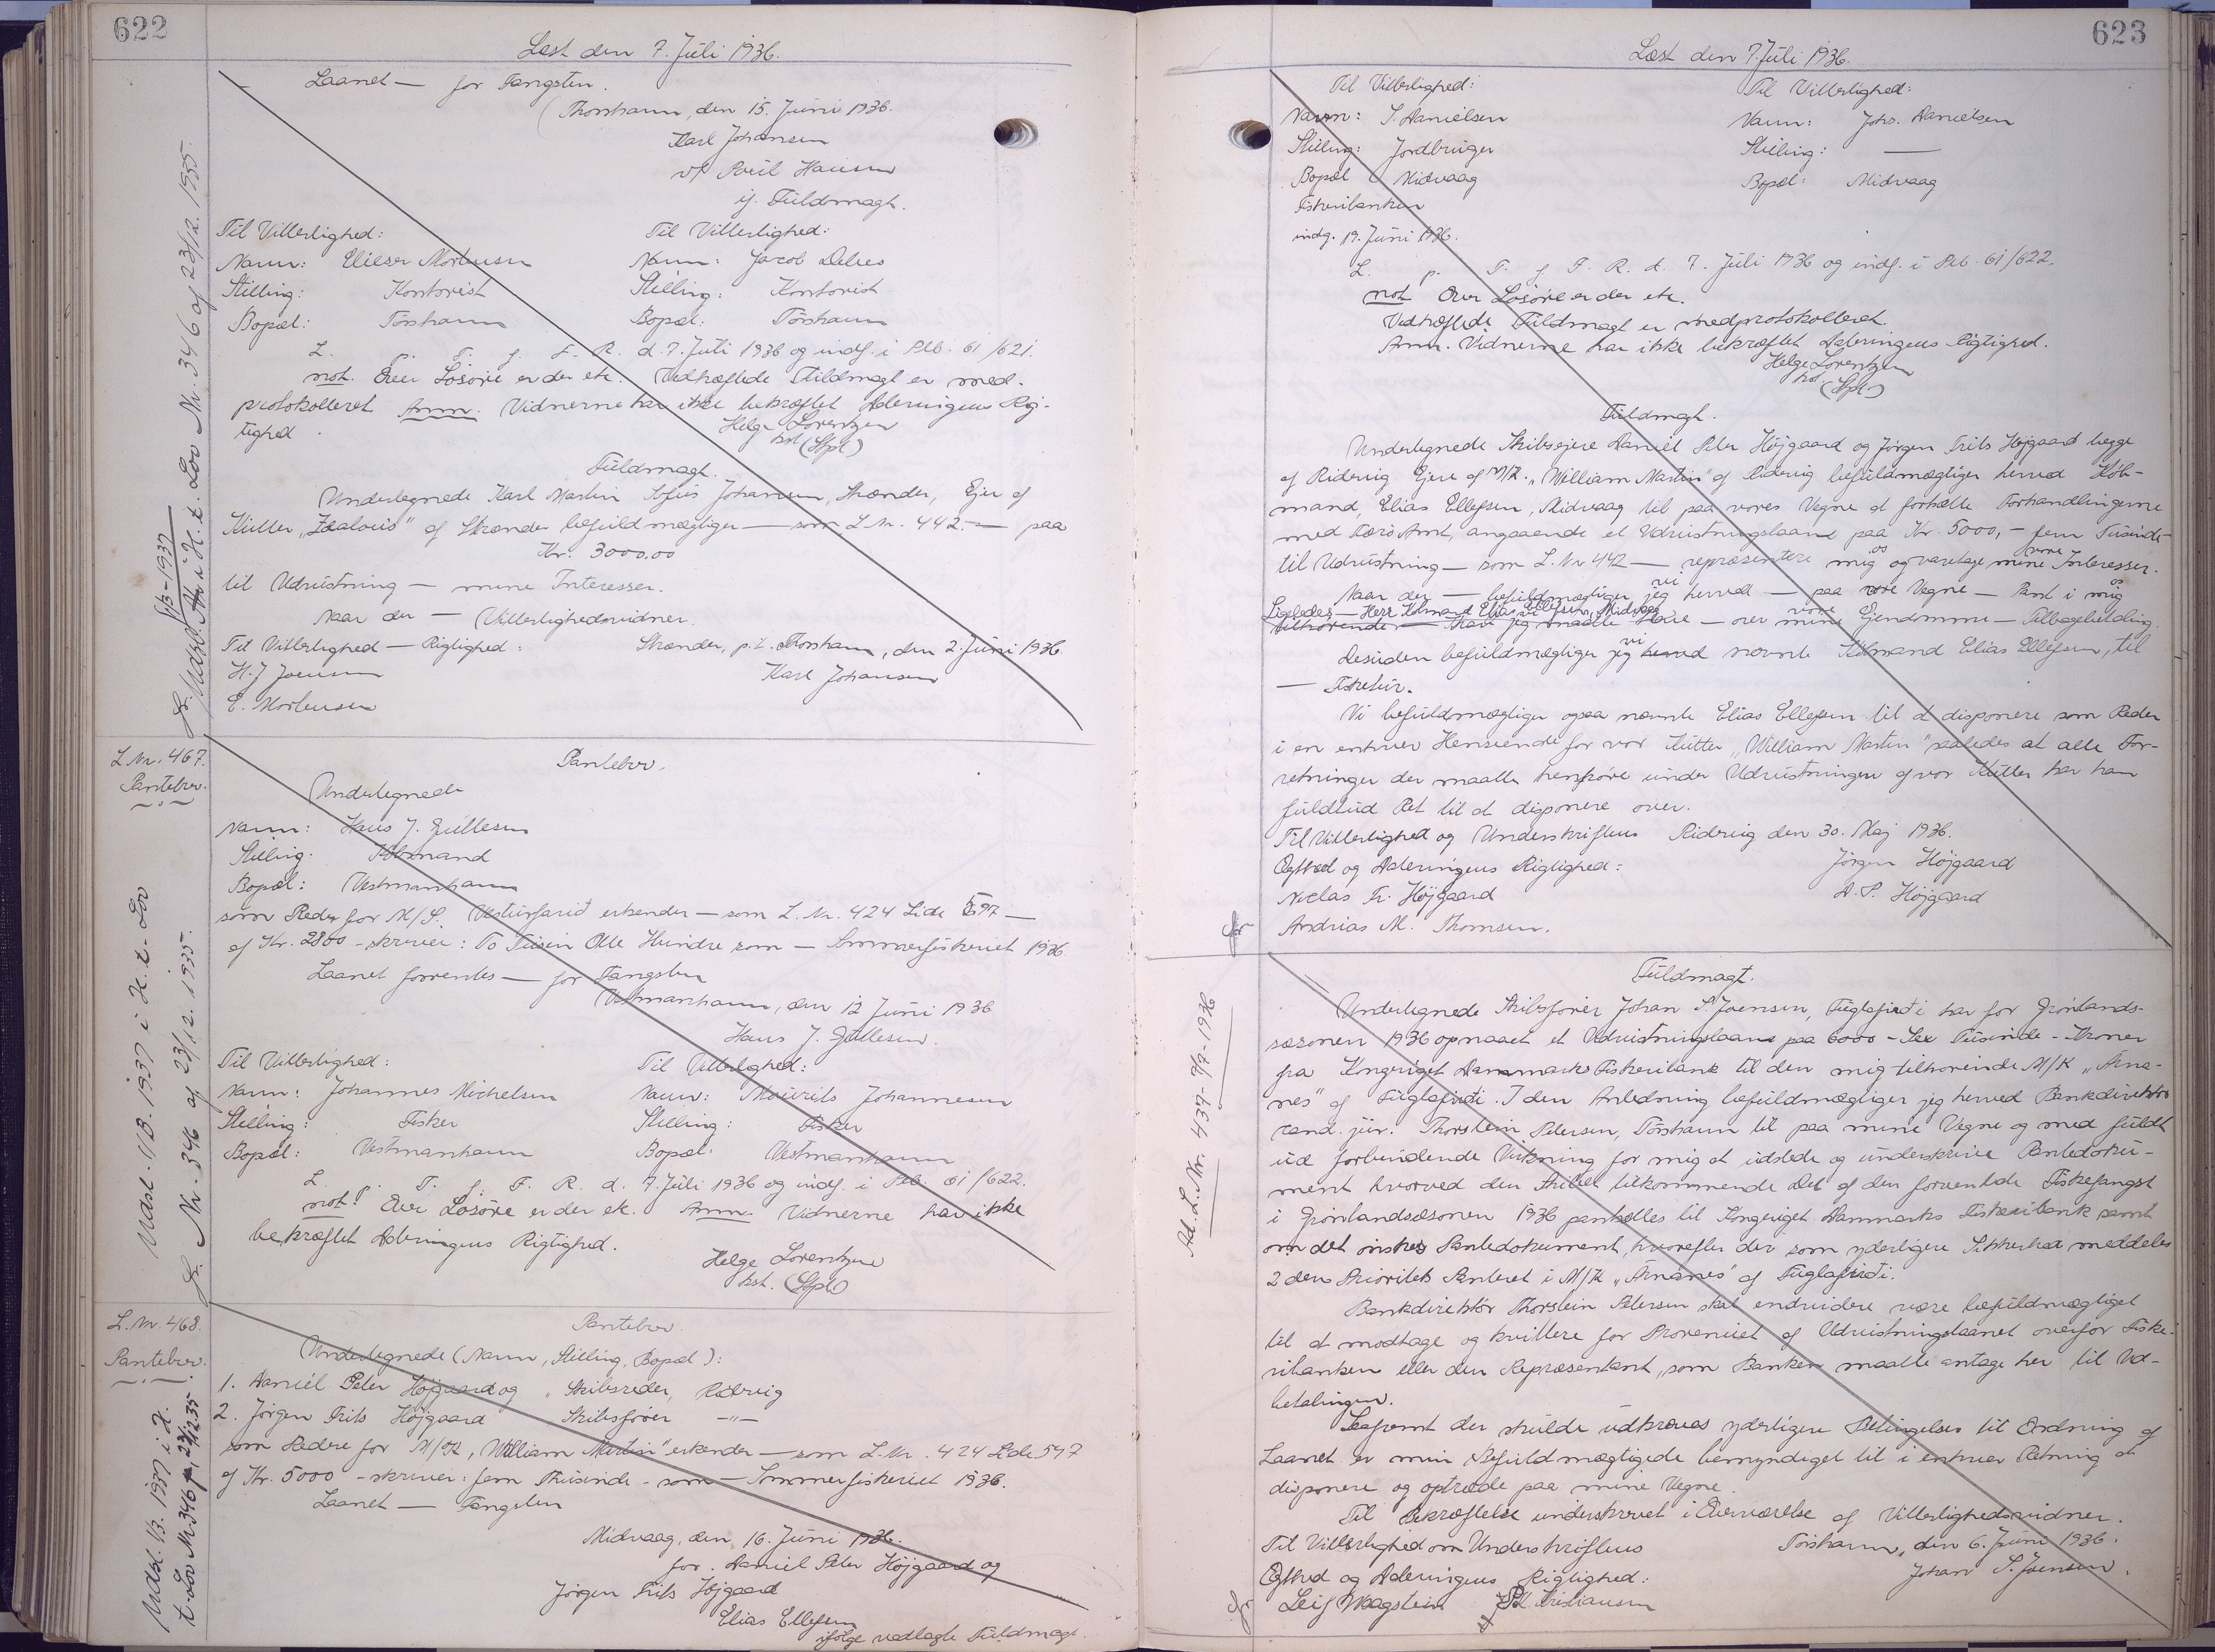 622
Læst den 7. Juli 1936.
Laanet — for Fangsten.
Thorshavn, den 15. Juni 1936.
Karl Johansen
v/ Poul Hansen
if. Fuldmagt.
Til Vitterlighed: Til Vitterlighed:
Navn: Elieser Mortensen Navn: Jacob Debes
Stilling: Kontorist Stilling: Kontorist
Bopæl: Tórshavn Bopæl: Tórshavn
L. p. T. f. F. R. d. 7. Juli 1936 og indf. i Ptb. 61/621.
not. Over Løsøre er der etc. Vedhæftede Fuldmagt er med-
protokolleret Anm. Vidnerne har ikke bekræftet Dateringens Rig-
tighed.
Helge Lorentzen
kst. (Stpl)
Fuldmagt.
Undertegnede Karl Martin Sofus Johansen, Strænder, Ejer af
Kutter „Realouis" af Strænder befuldmægtiger — som L. Nr. 442. — paa
Kr. 3000,00
til Udrustning — mine Interesser.
Naar der — Vitterlighedsvidner.
Til Vitterlighed — Rigtighed: Strænder, p.t. Thorshavn, den 2. Juni 1936.
H. J. Joensen Karl Johansen
E. Mortensen
Udsl. 1/3-1937 i H. t. Lov Nr. 346 af 23/12. 1935.
L. Nr. 467.
Pantebrev.
Pantebrev.
Undertegnede
Navn: Hans J. Gullesen
Stilling: Købmand
Bopæl: Vestmanhavn
som Reder for M/S. Vesturfarið erkender — som L. Nr. 424 Side 597 —
af Kr. 2800 - skriver: To Tusin Otte Hundre som — Sommerfiskeriet 1936.
Laanet forrentes — for Fangsten
Vestmanhavn, den 12 Juni 1936
Hans J. Gullesen.
Til Vitterlighed: Til Vitterlighed:
Navn: Johannes Michelsen Navn: Mourits Johannesen
Stilling: Fisker Stilling: Fisker
Bopæl: Vestmanhavn Bopæl: Vestmanhavn
L. p. T. f. F. R. d. 7. Juli 1936 og indf. i Ptb. 61/622.
not: Over Løsøre er der etc. Anm. Vidnerne har ikke
bekræftet Dateringens Rigtighed.
Helge Lorentzen
kst. (Stpl)
Udsl. 1/3. 1937 i H. t. Lov
Nr. 346 af 23/12. 1935.
L. Nr. 468.
Pantebrev.
Pantebrev.
Undertegnede (Navn, Stilling, Bopæl):
1. Daniel Peter Højgaard og Skibsreder, Ridevig
2. Jørgen Frits Højgaard Skibsfører —"—
som Redere for M/K „William Martin" erkender — som L. Nr. 424 Side 597
af Kr. 5000 - skriver: fem Thusinde - som — Sommerfiskeriet 1936.
Laanet — Fangsten
Midvaag, den 16. Juni 1936.
for. Daniel Peter Højgaard og
Jørgen Frits Højgaard
Elias Ellefsen
ifølge vedlagte Fuldmagt.
Udsl. 1/3. 1937 i H.
t. Lov Nr. 346 af 23/12.35.
623
Læst den 7. Juli 1936.
Til Vitterlighed: Til Vitterlighed:
Navn: S. Danielsen Navn: Johs. Danielsen
Stilling: Jordbruger Stilling: —
Bopæl Midvaag Bopæl: Midvaag
Fiskeribanken
indg. 19. Juni 1936.
L. p. T. f. F. R. d. 7. Juli 1936 og indf. i Ptb. 61/622.
not Over Løsøre er der etc.
Vedhæftede Fuldmagt er medprotokolleret.
Anm. Vidnerne har ikke bekræftet Dateringens Rigtighed.
Helge Lorentzen
kst. (Stpl)
Fuldmagt.
Undertegnede Skibsejere Daniel Peter Højgaard og Jørgen Frits Højgaard begge
af Ridevig Ejere af M/K. „William Martin" af Ridevig befuldmægtiger herved Køb-
mand, Elias Ellefsen, Midvaag til paa vores Vegne at fortsætte Forhandlingerne
med Færø Amt, angaaende et Udrustningslaan paa Kr. 5000,- fem Tusinde-
til Udrustning — som L. Nr 442 — repræsentere mig os og varetage mine vore Interesser.
Naar der — befuldmægtiger jeg vi herved — paa vore Vegne — Pant i mig os
Ligeledes — Herr Købmand Elias Ellefsen, Midvaag
tilhørende — skal jeg maatte have — over mine vore Ejendomme — Tilbagebetaling.
Desuden befuldmægtiger jeg vi herved nævnte Købmand Elias Ellefsen, til
— Fisketur.
Vi befuldmægtiger ogsaa nævnte Elias Ellefsen til at disponere som Reder
i en enhver Henseende for vor Kutter „William Martin" saaledes at alle For-
retninger der maatte henhøre under Udrustningen af vor Kutter har han
fuldtud Ret til at disponere over.
Til Vitterlighed og Underskriftens Ridevig den 30. Maj 1936.
Ægthed og Dateringens Rigtighed: Jørgen Højgaard
Niclas Fr. Højgaard D. P. Højgaard
Andrias M. Thomsen.
Fuldmagt.
Undertegnede Skibsfører Johan S. Joensen, Fuglafirði har for Grønlands-
sæsonen 1936 opnaaet et Udrustningslaan paa 6000 - Sex Tusinde - Kroner
fra Kongeriget Danmarks Fiskeribank til den mig tilhørende M/K „Arna-
nes" af Fuglafirði. I den Anledning befuldmægtiger jeg herved Bankdirektør
cand. jur. Thorstein Petersen, Tórshavn til paa mine Vegne og med fuldt
ud forbindende Virkning for mig at udstede og underskrive Pantedoku-
ment hvorved den Skibet tilkommende Del af den forventede Fiskefangst
i Grønlandssæsonen 1936 pantsættes til Kongeriget Danmarks Fiskeribank samt
om det ønskes Pantedokument, hvorefter der som yderligere Sikkerhed meddeles
2 den Prioritets Panteret i M/K „Arnanes" af Fuglafirði.
Bankdirektør Thorstein Petersen skal endvidere være befuldmægtiget
til at modtage og kvittere for Provenuet af Udrustningslaanet overfor Fiske-
ribanken eller den Repræsentant, som Banken maatte antage her til Ud-
betalingen.
Saafremt der skulde udkræves yderligere Betingelser til Ordning af
Laanet er min Befuldmægtigede bemyndiget til i enhver Retning at
disponere og optræde paa mine Vegne.
Til Bekræftelse underskrevet i Overværelse af Vitterlighedsvidner.
Til Vitterlighed om Underskriftens Tórshavn, den 6. Juni 1936.
Ægthed og Dateringens Rigtighed: Johan S. Joensen.
Leif Waagstein Kristiansen
Ad. L. Nr. 437 - 7/9-1936